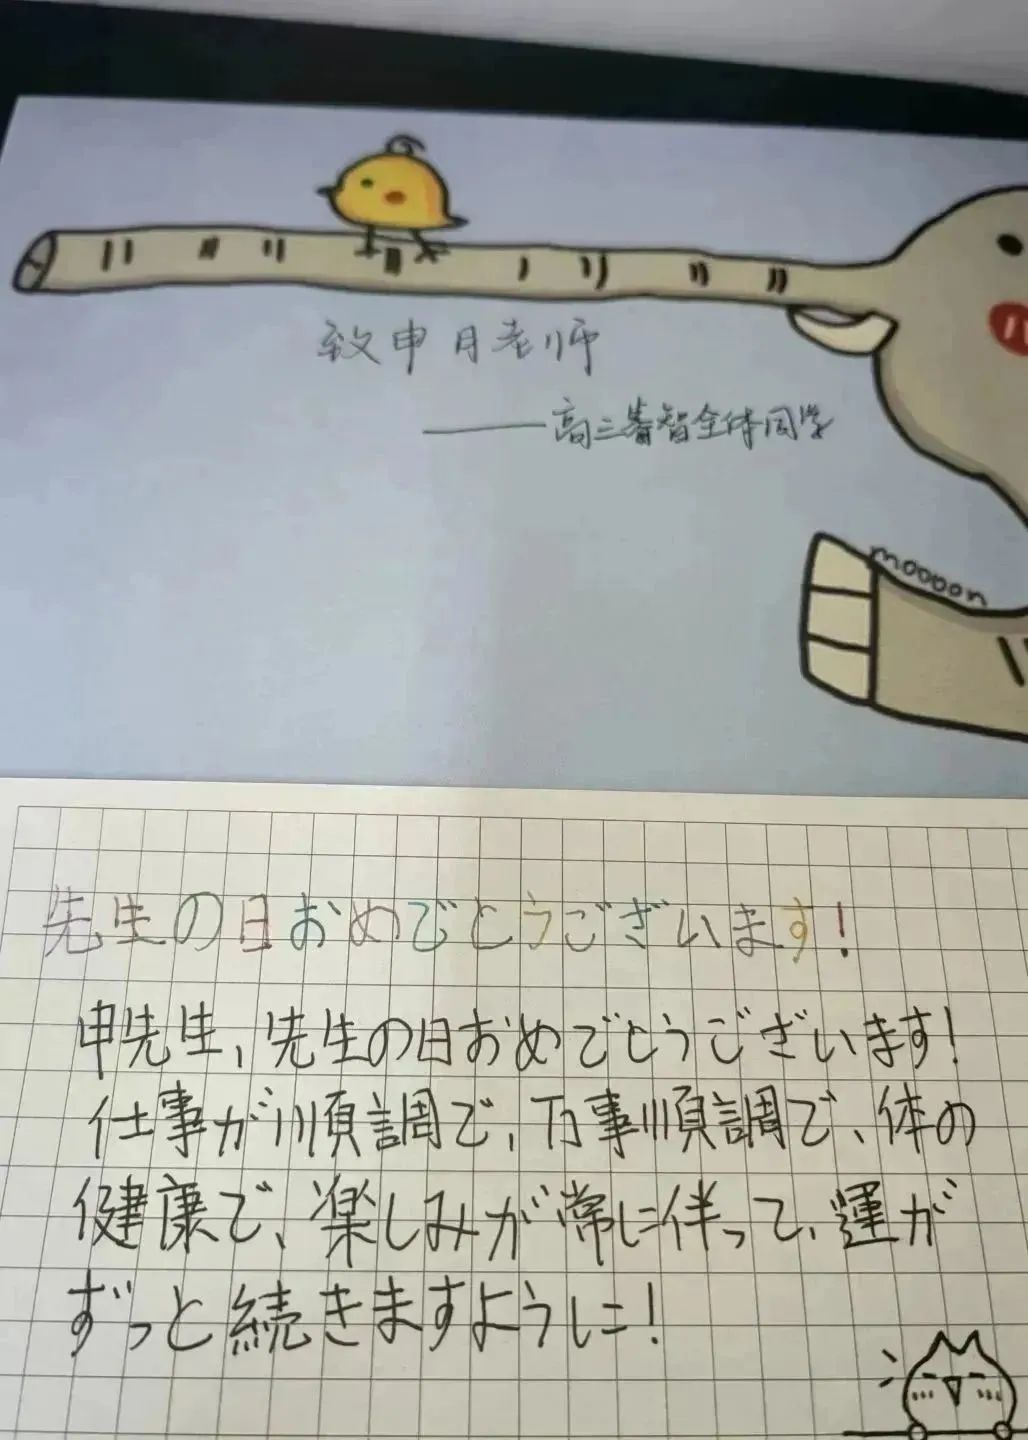 致申月老师
——高三睿智全体同学
moooon
先生の日おめでとうございます!
申先生、先生の日おめでとうございます!
仕事が順調で、万事順調で、体の
健康で、楽しみが常に伴って、運が
ずっと続きますように!